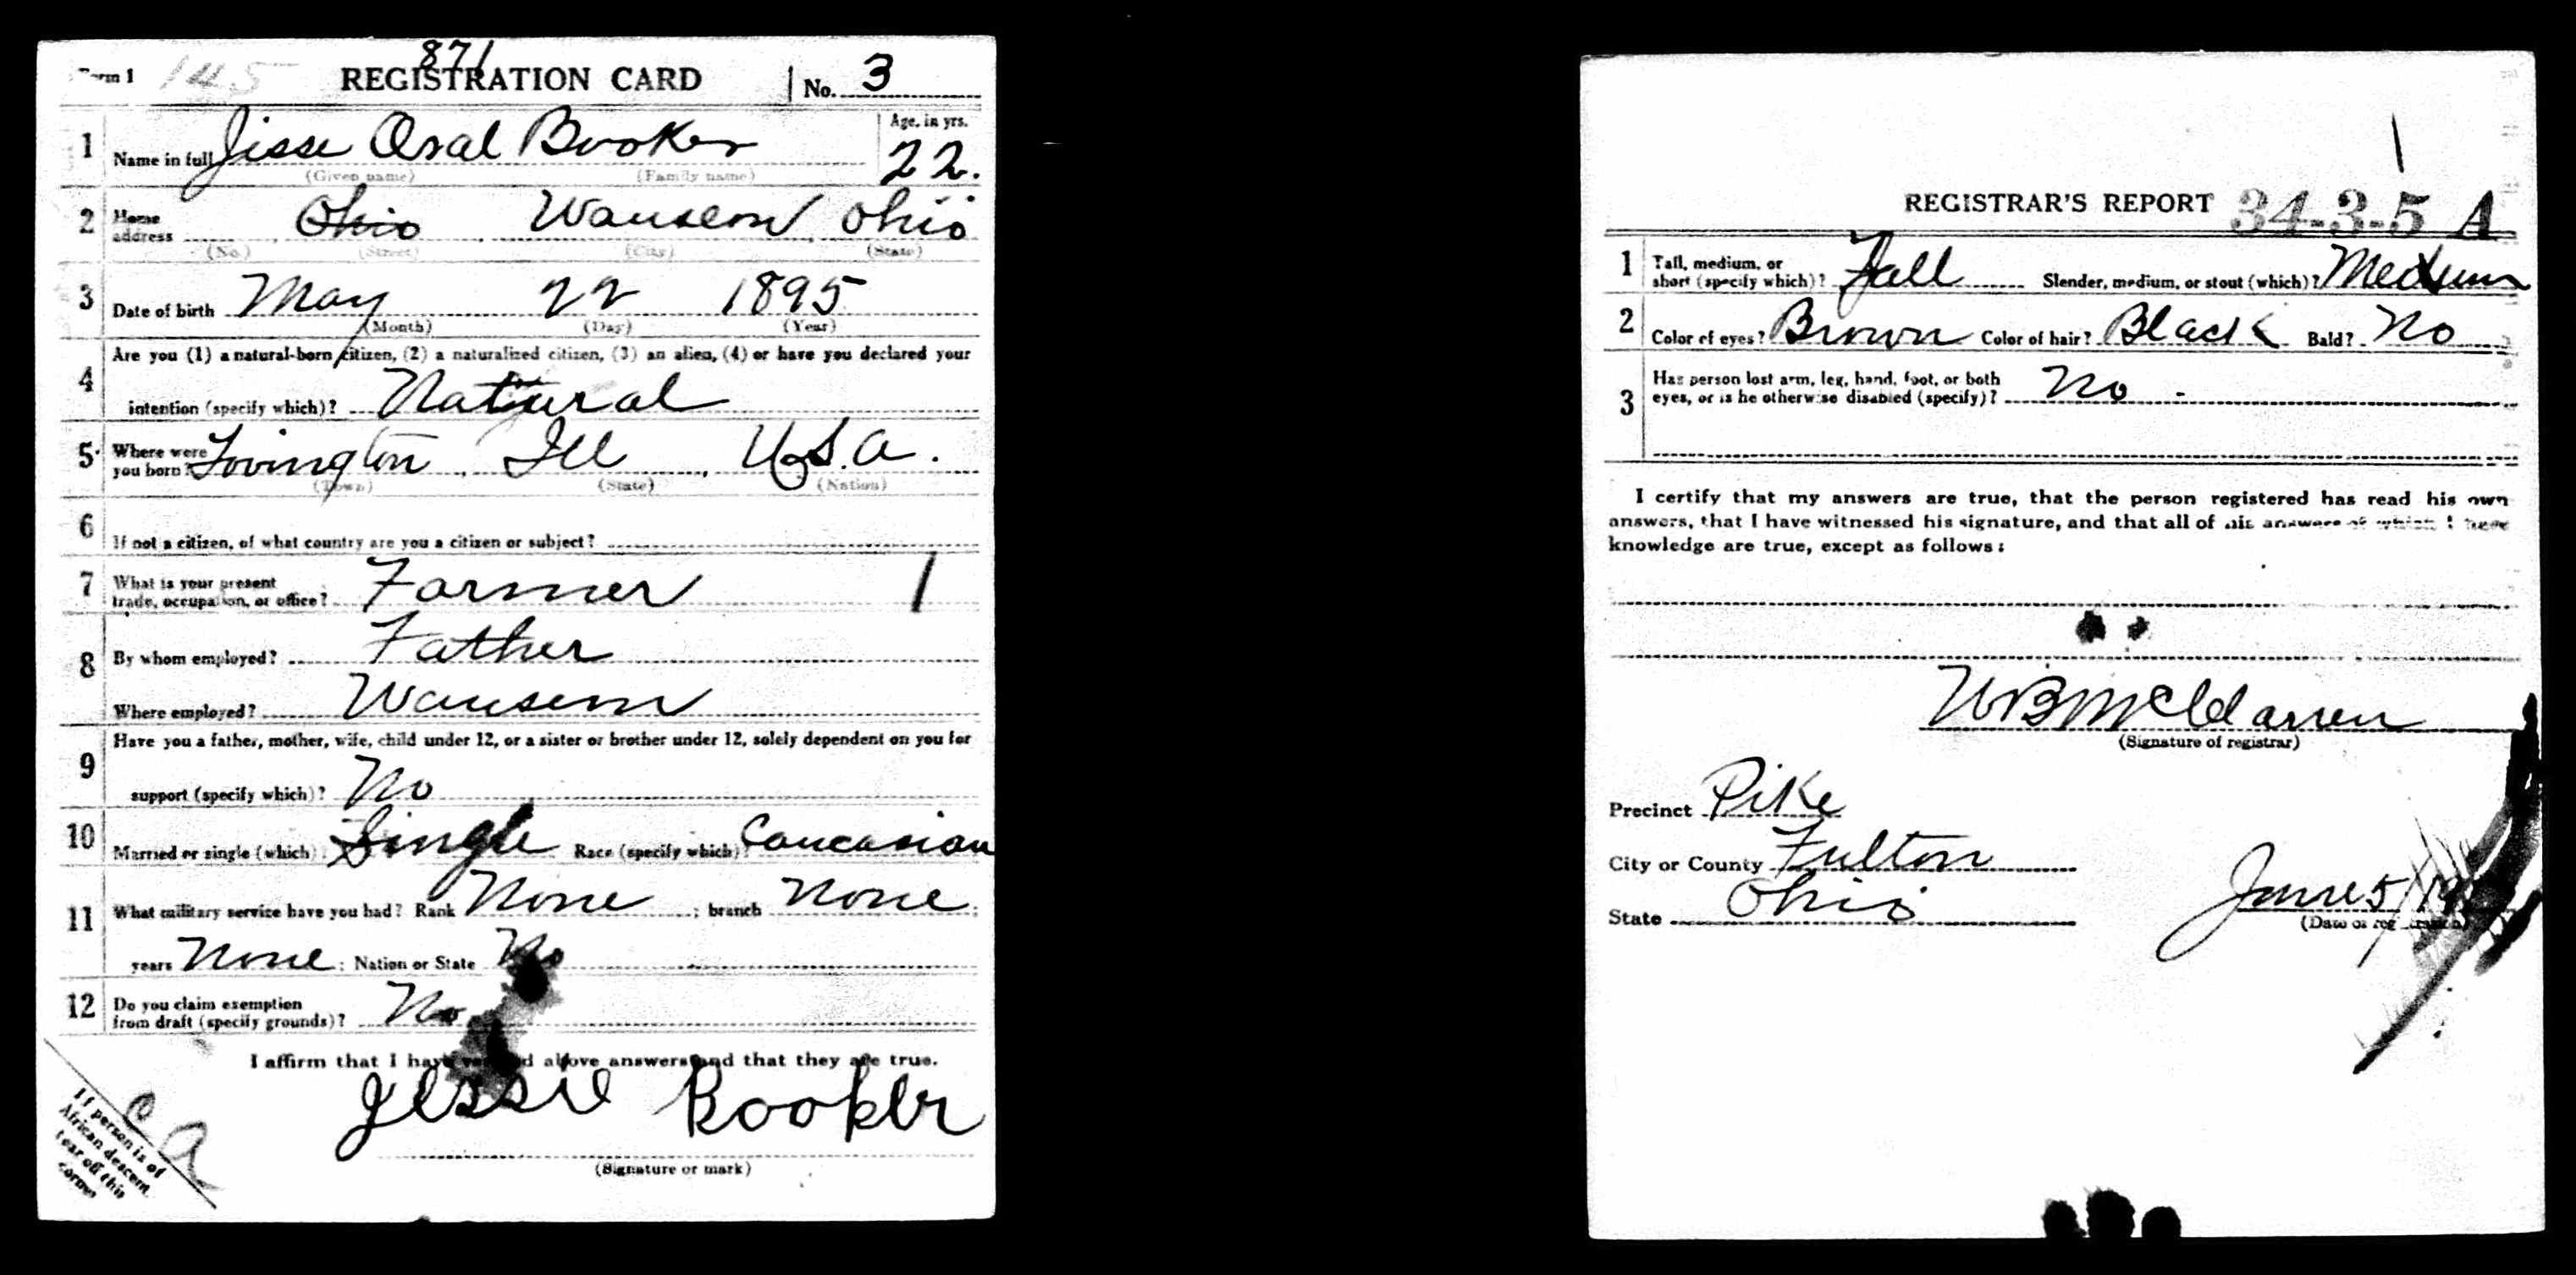 871
Form 1 145 REGISTRATION CARD No. 3
1 Name in full Jisse Oral Booker Age, in yrs. 22.
(Given name) (Family name)
2 Home address Ohio, Wauseon, Ohio
(No.) (Street) (City) (State)
3 Date of birth May 22 1895
(Month) (Day) (Year)
4 Are you (1) a natural-born citizen, (2) a naturalized citizen, (3) an alien, (4) or have you declared your
intention (specify which)? Natural
5 Where were you born? Lovington, Ill, U.S.A.
(Town) (State) (Nation)
6 If not a citizen, of what country are you a citizen or subject?
7 What is your present trade, occupation, or office? Farmer 1
8 By whom employed? Father
Where employed? Wauseon
9 Have you a father, mother, wife, child under 12, or a sister or brother under 12, solely dependent on you for
support (specify which)? No
10 Married or single (which) Single Race (specify which)? Caucasian
11 What military service have you had? Rank None; branch None;
years None; Nation or State No
12 Do you claim exemption from draft (specify grounds)? No
I affirm that I have verified above answers and that they are true.
Jessie Booker
(Signature or mark)
If person is of
African descent,
tear off this
corner
Ca
1
REGISTRAR'S REPORT 34-3-5 A
1 Tall, medium, or short (specify which)? Tall Slender, medium, or stout (which)? Medium
2 Color of eyes? Brown Color of hair? Black Bald? No
3 Has person lost arm, leg, hand, foot, or both
eyes, or is he otherwise disabled (specify)? No -
I certify that my answers are true, that the person registered has read his own
answers, that I have witnessed his signature, and that all of his answers of which I have
knowledge are true, except as follows:
(Signature of registrar)
Precinct Pike
City or County Fulton
State Ohio June 5/19
(Date of registration)